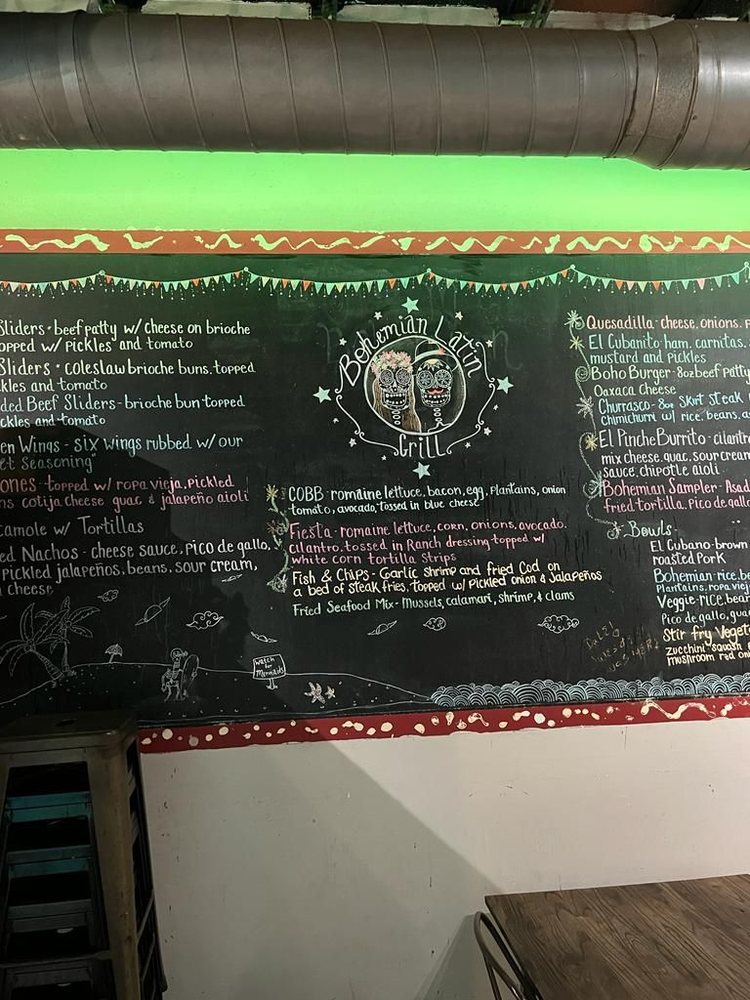 Sliders - beef patty w/ cheese on brioche
opped w/ pickles and tomato
Sliders - coleslaw brioche buns, topped
ckles and tomato
ded Beef Sliders - brioche bun topped
ckles and tomato
en Wings - six wings rubbed w/ our
et Seasoning
ones - topped w/ ropa vieja, pickled
ns cotija cheese guac & jalapeño aioli
camole w/ Tortillas
ed Nachos - cheese sauce, pico de gallo,
pickled jalapeños, beans, sour cream,
cheese
watch
for
Mermaids
Bohemian Latin
Grill
COBB - romaine lettuce, bacon, egg, plantains, onion
tomato, avocado, tossed in blue cheese
Fiesta - romaine lettuce, corn, onions, avocado,
cilantro, tossed in Ranch dressing topped w/
white corn tortilla strips
Fish & Chips - Garlic shrimp and fried Cod on
a bed of steak fries, topped w/ Pickled onion & Jalapeños
Fried Seafood Mix - Mussels, calamari, shrimp, & clams
Quesadilla - cheese, onions, p
El Cubanito ham, carnitas,
mustard and pickles
Boho Burger - 8oz beef patty
Oaxaca cheese
Churrasco - 8oz Skirt Steak
chimichurri w/ rice, beans, a
El Pinche Burrito - cilantro
mix cheese, guac, sour cream
sauce, chipotle aioli
Bohemian Sampler - Asad
fried tortilla, Pico de gallo
Bowls
El Cubano - brown
roasted Pork
Bohemian - rice, be
Plantains, ropa viej
Veggie - rice, bean
Pico de gallo, gua
Stir fry Veget
zucchini squash
mushroom red oni